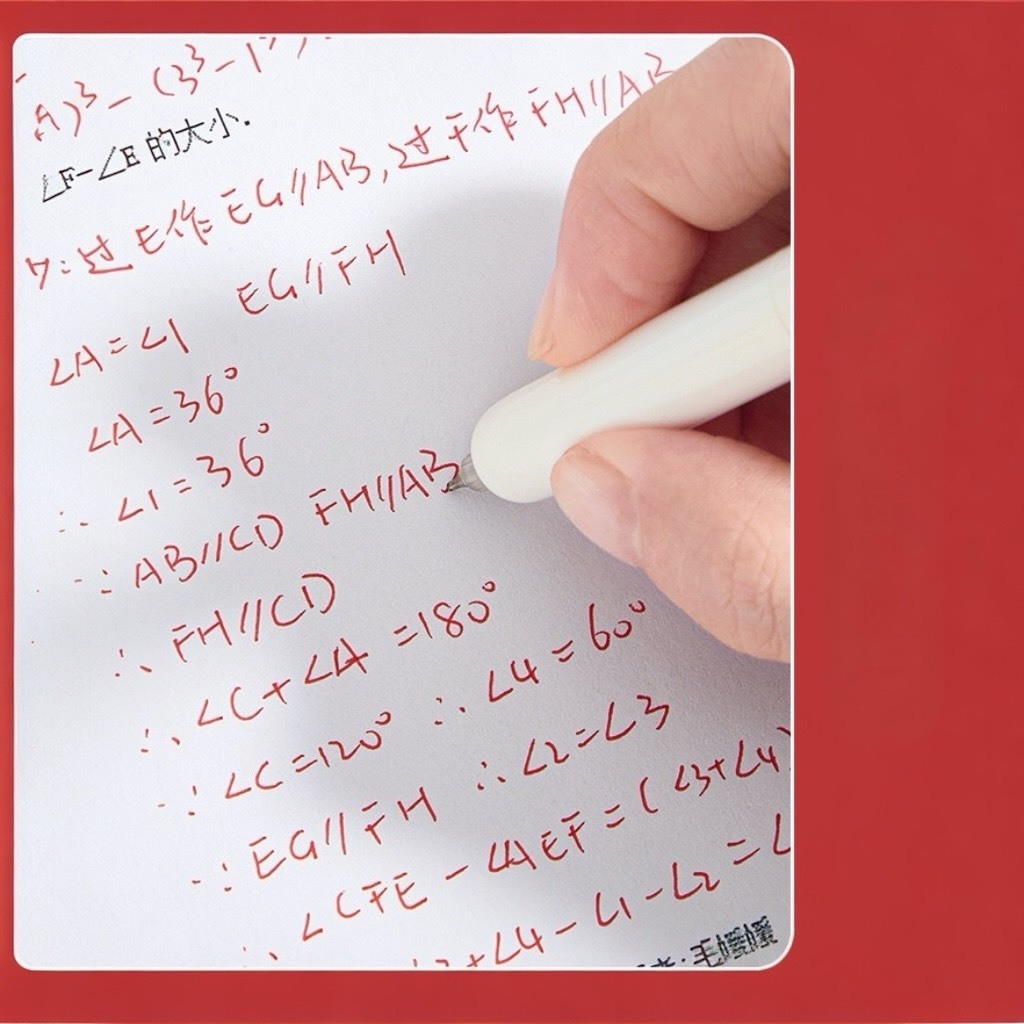 )³-(3³-1
∠F-∠E 的大小.
过E作EG//AB,过F作FH//AB
EG//FH
∠A=∠1
∠A=36°
∴ ∠1=36°
∵ AB//CD FH//AB
∴ FH//CD
∴ ∠C+∠4=180°
∵ ∠C=120° ∴ ∠4=60°
∵ EG//FH ∴ ∠2=∠3
∴ ∠CFE-∠AEF=(∠3+∠4)
+∠4-∠1-∠2=∠
毛